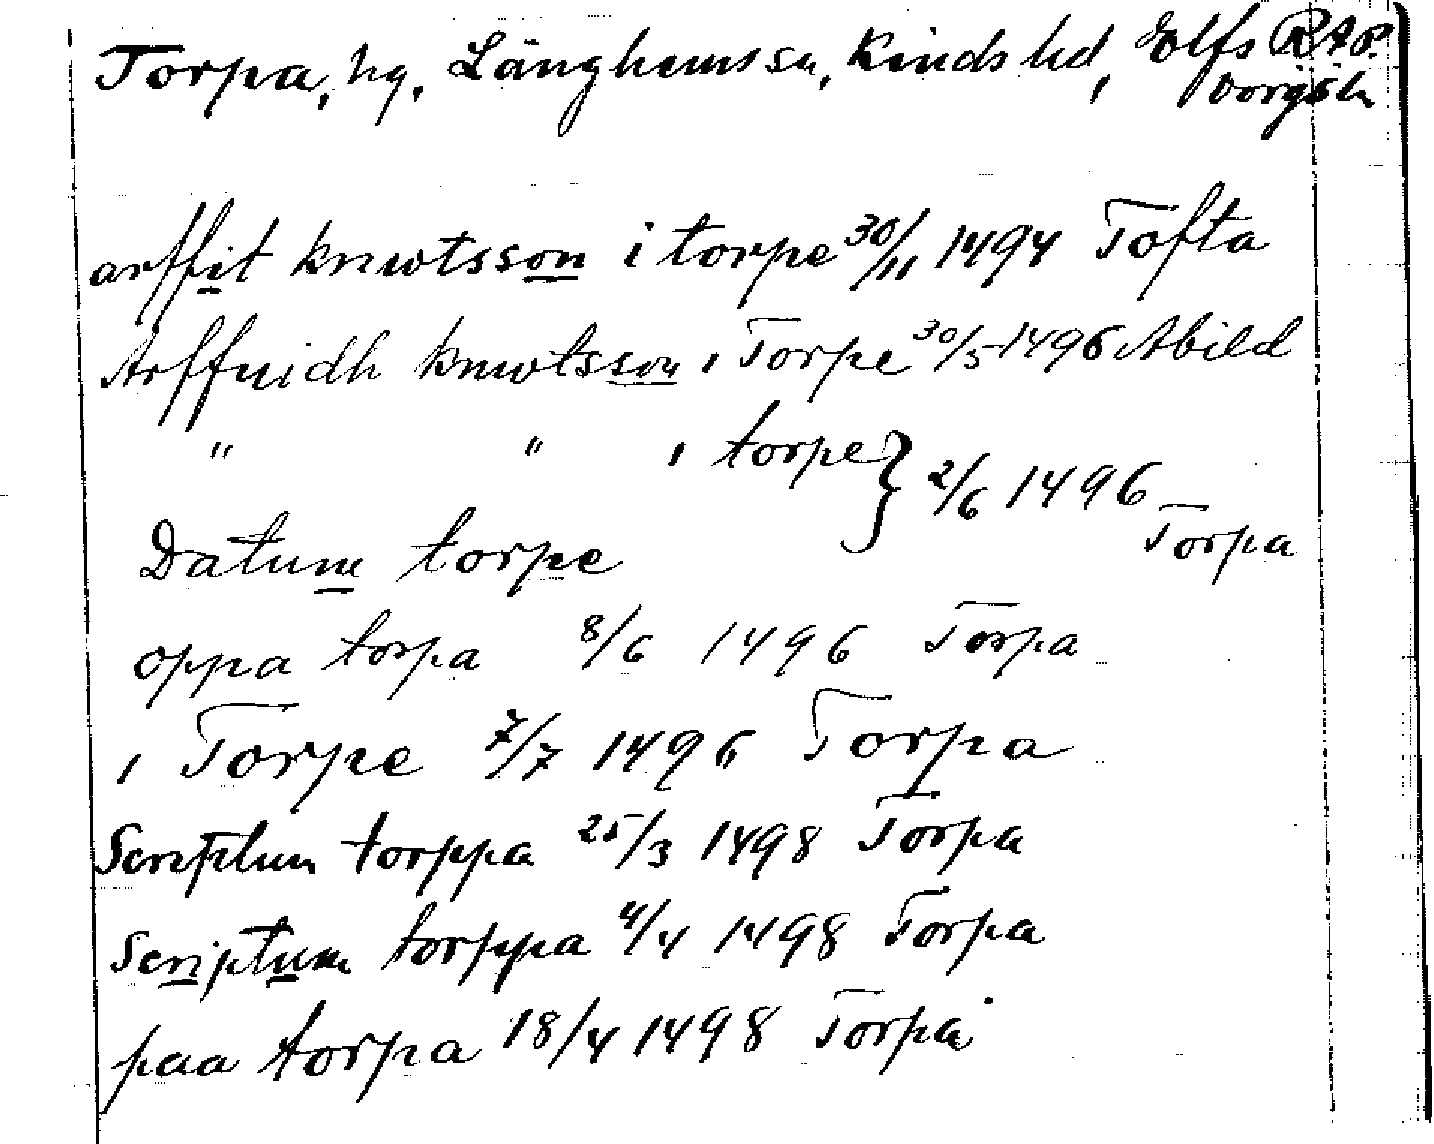 Torpa, hg, Länghems sn, Kinds hd, Elfs RAP.
Borgsk
arffit knwtsson i torpe 30/11 1494 Tofta
Arffuidh knwtsson i Torpe 30/5 1496 Abild
" " i torpe } 2/6 1496 Torpa
Datum torpe
oppa torpa 8/6 1496 Torpa
i Torpe 7/7 1496 Torpa
Scriptum torppa 25/3 1498 Torpa
Scriptum torppa 4/4 1498 Torpa
paa torpa 18/4 1498 Torpa